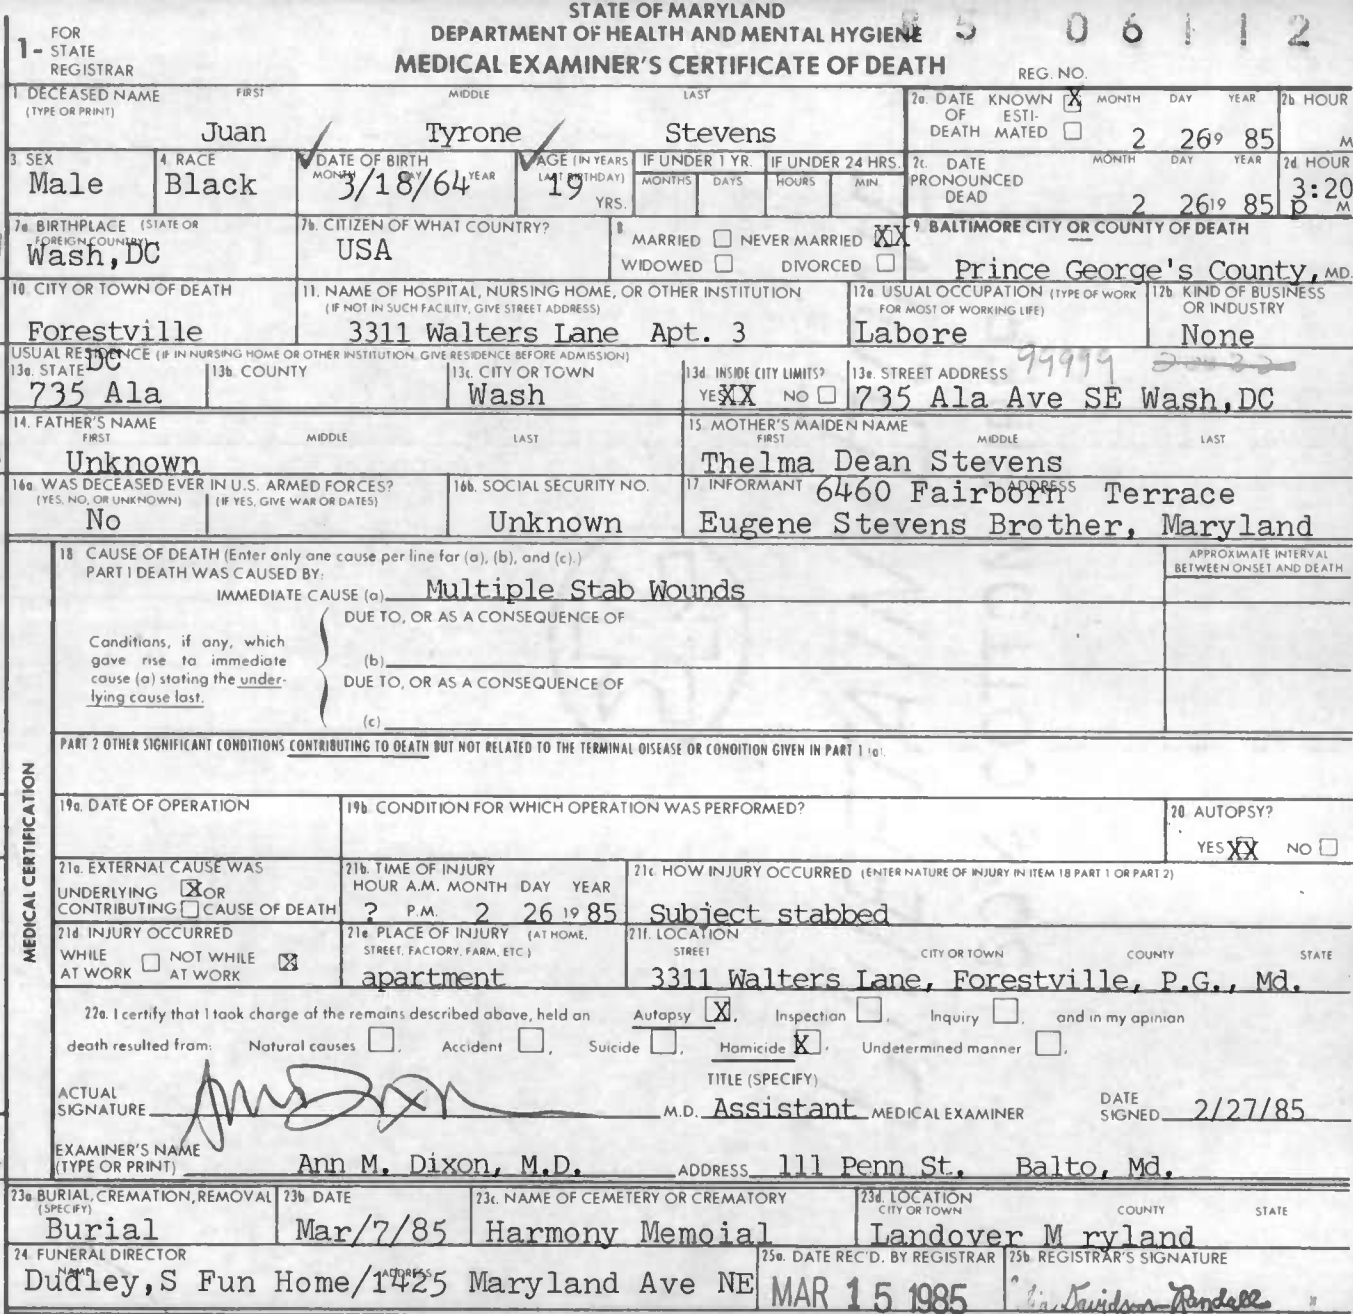 STATE OF MARYLAND
DEPARTMENT OF HEALTH AND MENTAL HYGIENE
MEDICAL EXAMINER'S CERTIFICATE OF DEATH
1- FOR STATE REGISTRAR
5 06112
REG. NO.
1 DECEASED NAME (TYPE OR PRINT) FIRST MIDDLE LAST
Juan Tyrone Stevens
2a. DATE OF DEATH KNOWN X ESTIMATED MONTH DAY YEAR
2 26 19 85
2b HOUR M
3 SEX
Male
4. RACE
Black
DATE OF BIRTH MONTH DAY YEAR
3/18/64
AGE (IN YEARS LAST BIRTHDAY)
19 YRS.
IF UNDER 1 YR. MONTHS DAYS
IF UNDER 24 HRS. HOURS MIN
2c. DATE PRONOUNCED DEAD MONTH DAY YEAR
2 26 19 85
2d HOUR
3:20 P M
7a BIRTHPLACE (STATE OR FOREIGN COUNTRY)
Wash,DC
7b. CITIZEN OF WHAT COUNTRY?
USA
8 MARRIED NEVER MARRIED XX
WIDOWED DIVORCED
9 BALTIMORE CITY OR COUNTY OF DEATH
Prince George's County, MD.
10. CITY OR TOWN OF DEATH
Forestville
11. NAME OF HOSPITAL, NURSING HOME, OR OTHER INSTITUTION
(IF NOT IN SUCH FACILITY, GIVE STREET ADDRESS)
3311 Walters Lane Apt. 3
12a USUAL OCCUPATION (TYPE OF WORK FOR MOST OF WORKING LIFE)
Labore
12b KIND OF BUSINESS OR INDUSTRY
None
USUAL RESIDENCE (IF IN NURSING HOME OR OTHER INSTITUTION GIVE RESIDENCE BEFORE ADMISSION)
13a. STATE DC
735 Ala
13b COUNTY
13c. CITY OR TOWN
Wash
13d INSIDE CITY LIMITS?
YES XX NO
13e. STREET ADDRESS 99999
735 Ala Ave SE Wash,DC
14. FATHER'S NAME FIRST MIDDLE LAST
Unknown
15 MOTHER'S MAIDEN NAME FIRST MIDDLE LAST
Thelma Dean Stevens
16a WAS DECEASED EVER IN U.S. ARMED FORCES?
(YES, NO, OR UNKNOWN) (IF YES, GIVE WAR OR DATES)
No
16b. SOCIAL SECURITY NO.
Unknown
17 INFORMANT ADDRESS
6460 Fairborn Terrace
Eugene Stevens Brother, Maryland
MEDICAL CERTIFICATION
18 CAUSE OF DEATH (Enter only one cause per line for (a), (b), and (c).)
PART I DEATH WAS CAUSED BY:
IMMEDIATE CAUSE (a) Multiple Stab Wounds
APPROXIMATE INTERVAL BETWEEN ONSET AND DEATH
DUE TO, OR AS A CONSEQUENCE OF
Conditions, if any, which gave rise to immediate cause (a) stating the underlying cause last.
(b)
DUE TO, OR AS A CONSEQUENCE OF
(c)
PART 2 OTHER SIGNIFICANT CONDITIONS CONTRIBUTING TO DEATH BUT NOT RELATED TO THE TERMINAL DISEASE OR CONDITION GIVEN IN PART 1 (a).
19a. DATE OF OPERATION
19b CONDITION FOR WHICH OPERATION WAS PERFORMED?
20 AUTOPSY?
YES XX NO
21a. EXTERNAL CAUSE WAS
UNDERLYING X OR
CONTRIBUTING CAUSE OF DEATH
21b. TIME OF INJURY
HOUR A.M. MONTH DAY YEAR
? P.M. 2 26 19 85
21c HOW INJURY OCCURRED (ENTER NATURE OF INJURY IN ITEM 18 PART 1 OR PART 2)
Subject stabbed
21d INJURY OCCURRED
WHILE AT WORK NOT WHILE AT WORK X
21e PLACE OF INJURY (AT HOME, STREET, FACTORY, FARM, ETC)
apartment
21f. LOCATION
STREET CITY OR TOWN COUNTY STATE
3311 Walters Lane, Forestville, P.G., Md.
22a. I certify that I took charge of the remains described above, held an Autopsy X, Inspection, Inquiry, and in my opinion
death resulted from: Natural causes, Accident, Suicide, Homicide X, Undetermined manner.
ACTUAL SIGNATURE
M.D.
TITLE (SPECIFY)
Assistant MEDICAL EXAMINER
DATE SIGNED 2/27/85
EXAMINER'S NAME (TYPE OR PRINT) Ann M. Dixon, M.D.
ADDRESS 111 Penn St. Balto, Md.
23a BURIAL, CREMATION, REMOVAL (SPECIFY)
Burial
23b DATE
Mar/7/85
23c. NAME OF CEMETERY OR CREMATORY
Harmony Memoial
23d. LOCATION CITY OR TOWN COUNTY STATE
Landover M ryland
24 FUNERAL DIRECTOR NAME ADDRESS
Dudley,S Fun Home/1425 Maryland Ave NE
25a. DATE REC'D. BY REGISTRAR
MAR 15 1985
25b REGISTRAR'S SIGNATURE
Davidson-Randall